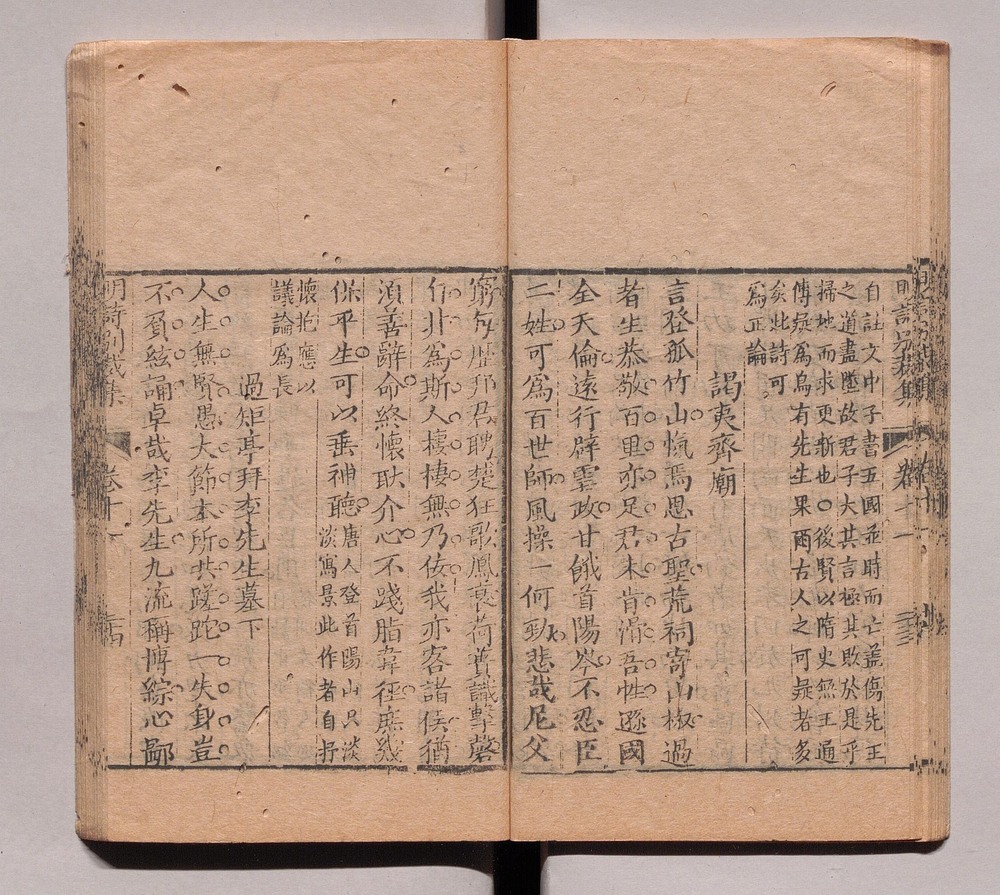 明詩別裁集 卷十一
自註文中子書五國並時而亡蓋傷先王
之道盡墜故君子大其言極其敗於是乎
掃地而求更新也○後賢以隋史無王通
傳疑為烏有先生果爾古人之可疑者多
矣此詩可
為正論
謁夷齊廟
言登孤竹山愾焉思古聖荒祠寄山椒過
者生恭敬百里亦足君未肯滑吾性遜國
全天倫遠行辟虐政甘餓首陽岑不忍臣
二姓可為百世師風操一何勁悲哉尼父
窮每歷邦君聘楚狂歌鳳衰荷蕢譏擊磬
自非為斯人棲棲無乃佞我亦客諸侯猶
須善辭命終懷耿介心不踐脂韋徑庶幾
保平生可以垂神聽
唐人登首陽山只淡
淡寫景此作者自抒
懷抱應以
議論為長
過矩亭拜李先生墓下
人生無賢愚大節本所共蹉跎一失身豈
不負絃誦卓哉李先生九流稱博綜心鄙
明詩別裁集 卷十一